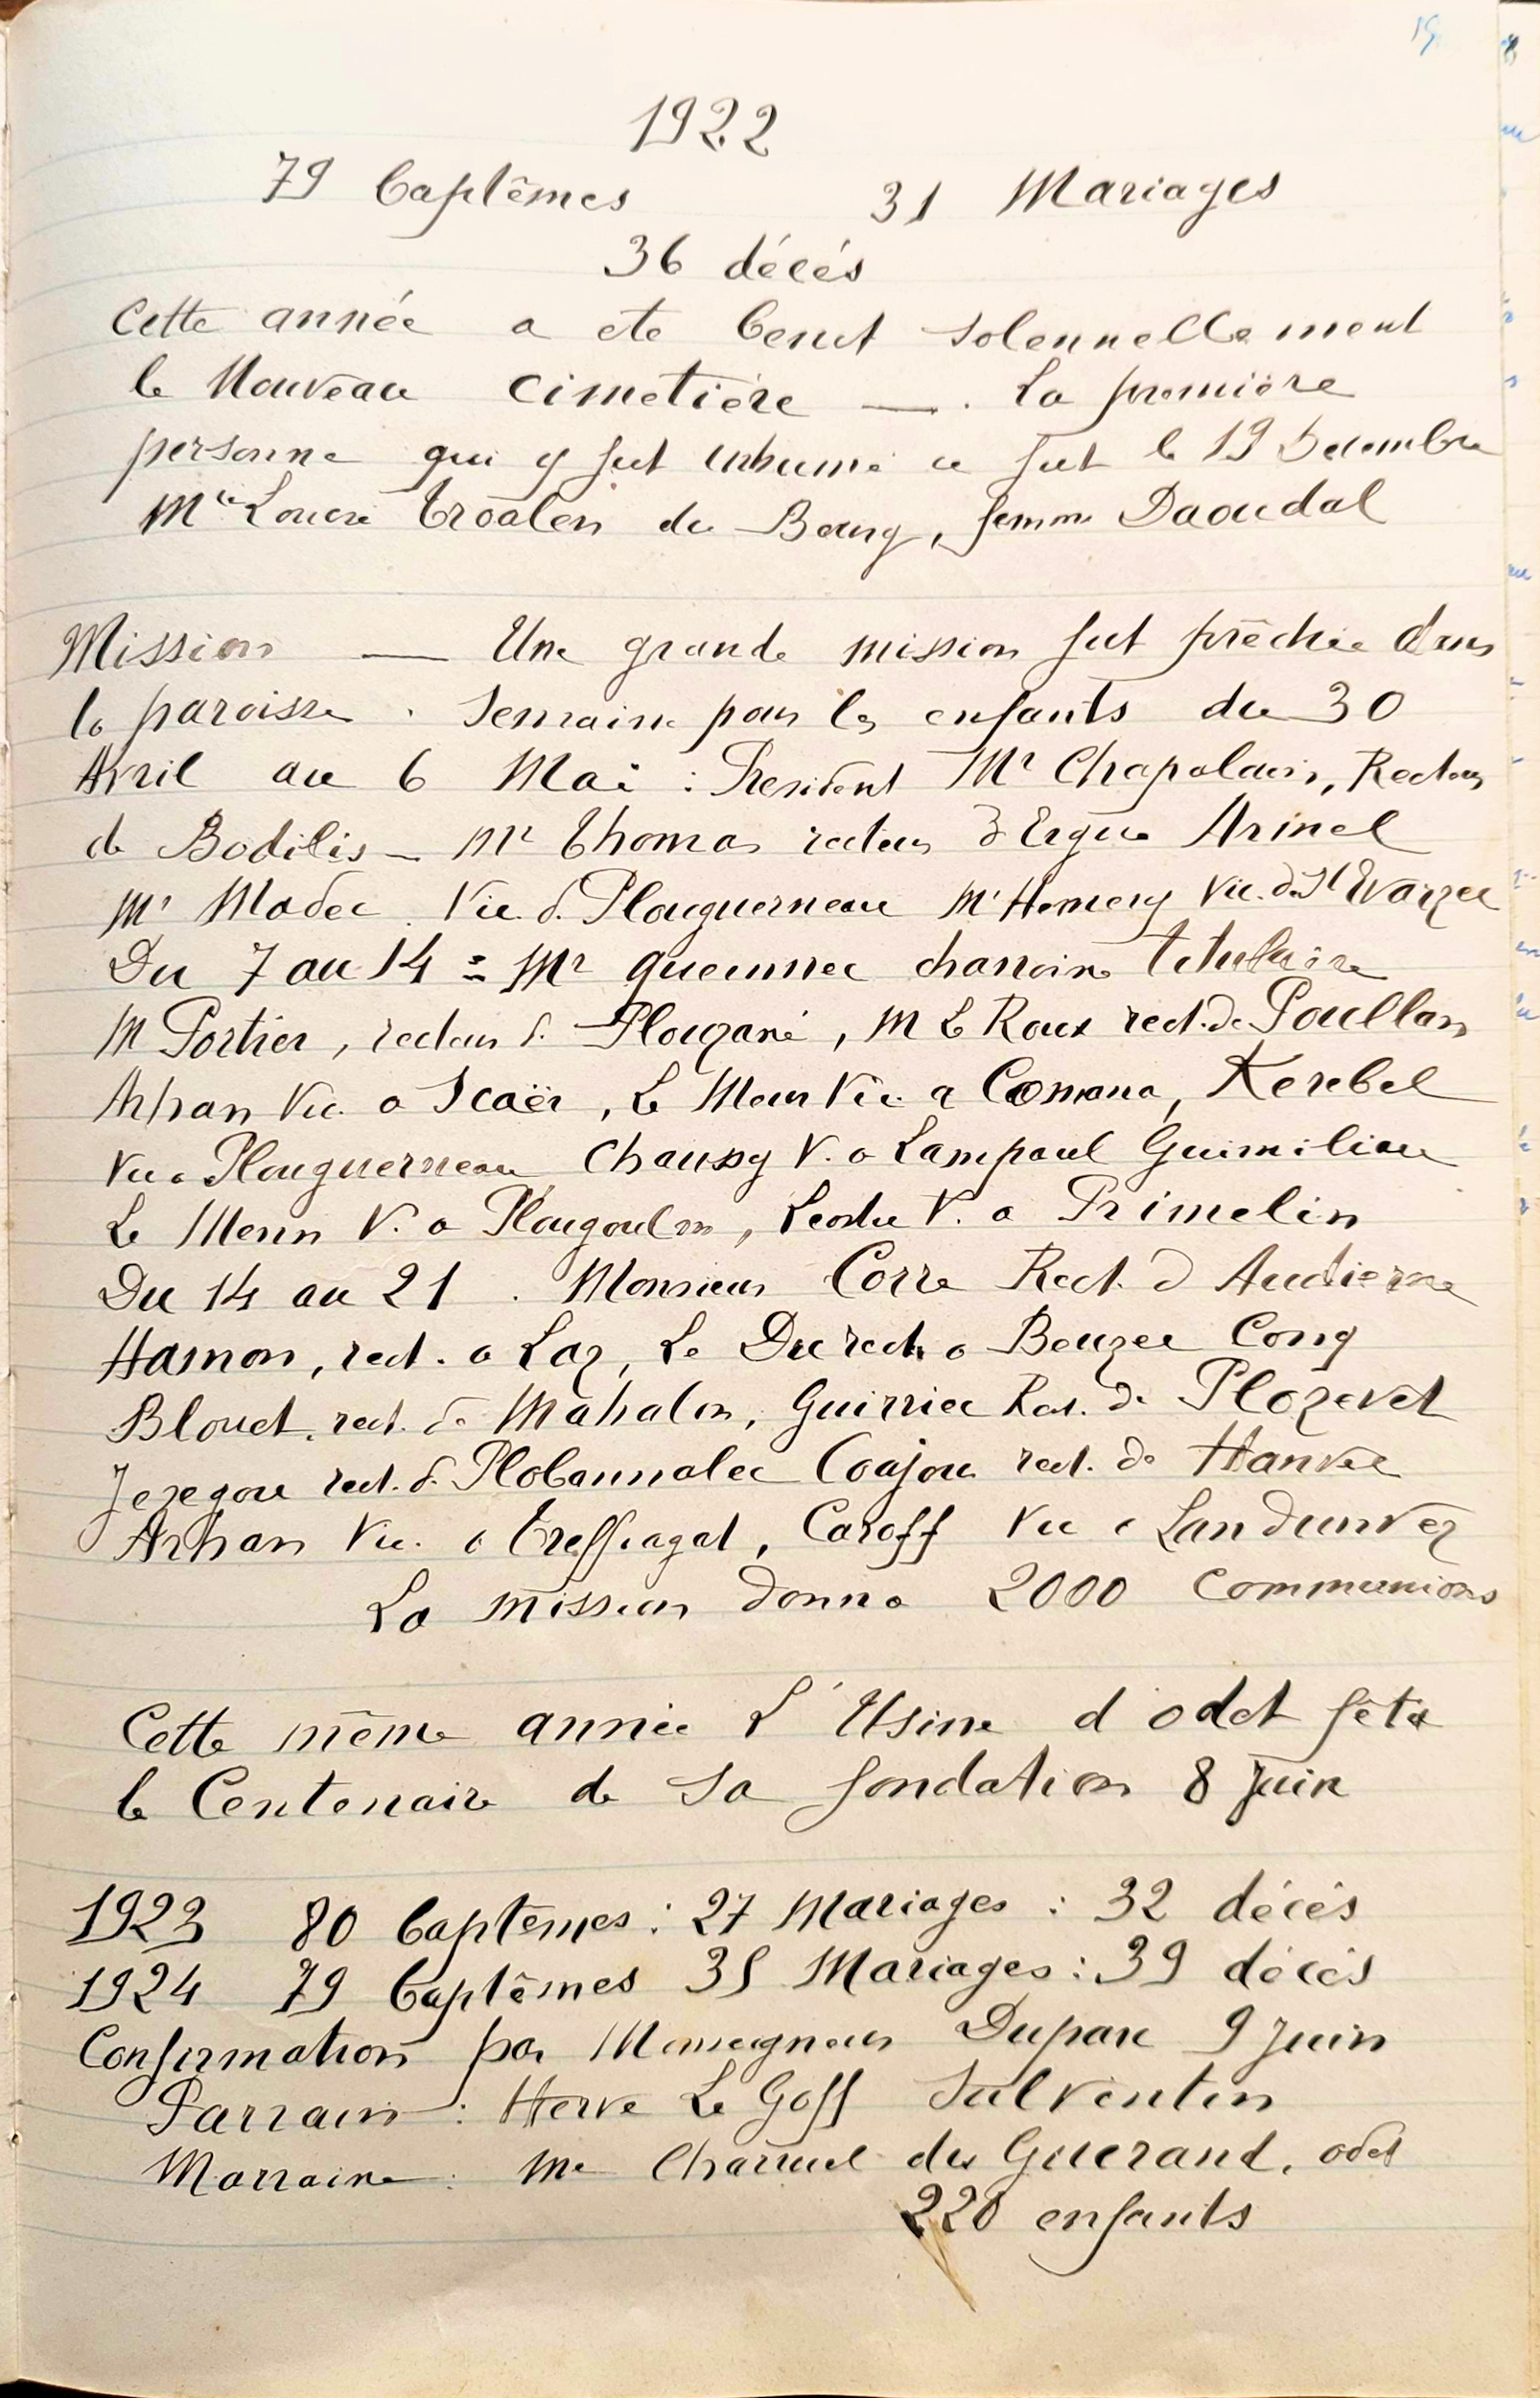 1922
79 baptêmes 31 Mariages
36 décés
Cette année a ete benit solennellement
le Nouveau cimetière —. La première
personne qui y fut inhumé ce fut le 19 Decembre
Mie Louise Troalen du Bourg, femme Daoudal
Mission — Une grande mission fut prêchée dans
la paroisse. Semaine pour les enfants du 30
Avril au 6 Mai : President Mr Chapalain, Recteur
de Bodilis — Mr Thomas recteur d'Ergue Armel
Mr Madec Vic. d. Plouguerneau Mr Hemery Vic. de St Evarzec
Du 7 au 14 = Mr queinnec chanoine titulaire
M Portier, recteur d. Plougané, M Le Roux rect. de Poullan
Arhan Vic. a Scaër, Le Meur Vic. a Comana, Kerebel
Vic a Plouguerneau Chaussy V. a Lampaul Guimiliau
Le Menn V. a Plougoulm, V. a Primelin
Du 14 au 21. Monsieur Corre Rect. d Audierne
Hamon, rect. a Laz, Le Du rect. a Beuzec Conq
Blouet, rect. de Mahalon, Guirriec Rect. de Plozevet
Jezegou rect. d. Plobannalec Coajou rect. de Hanvec
Arhan Vic. a Treffiagat, Caroff Vic a Landunvez
La mission donna 2000 Communions
Cette même année L'Usine d odet fêta
le Centenaire de sa fondation 8 Juin
1923 80 baptêmes : 27 Mariages : 32 décés
1924 79 baptêmes 35 Mariages : 39 décés
Confirmation par Monseigneur Duparc 9 Juin
Parrain : Herve Le Goff Sulvintin
Marraine : Me Charuel du Guerand, odet
220 enfants